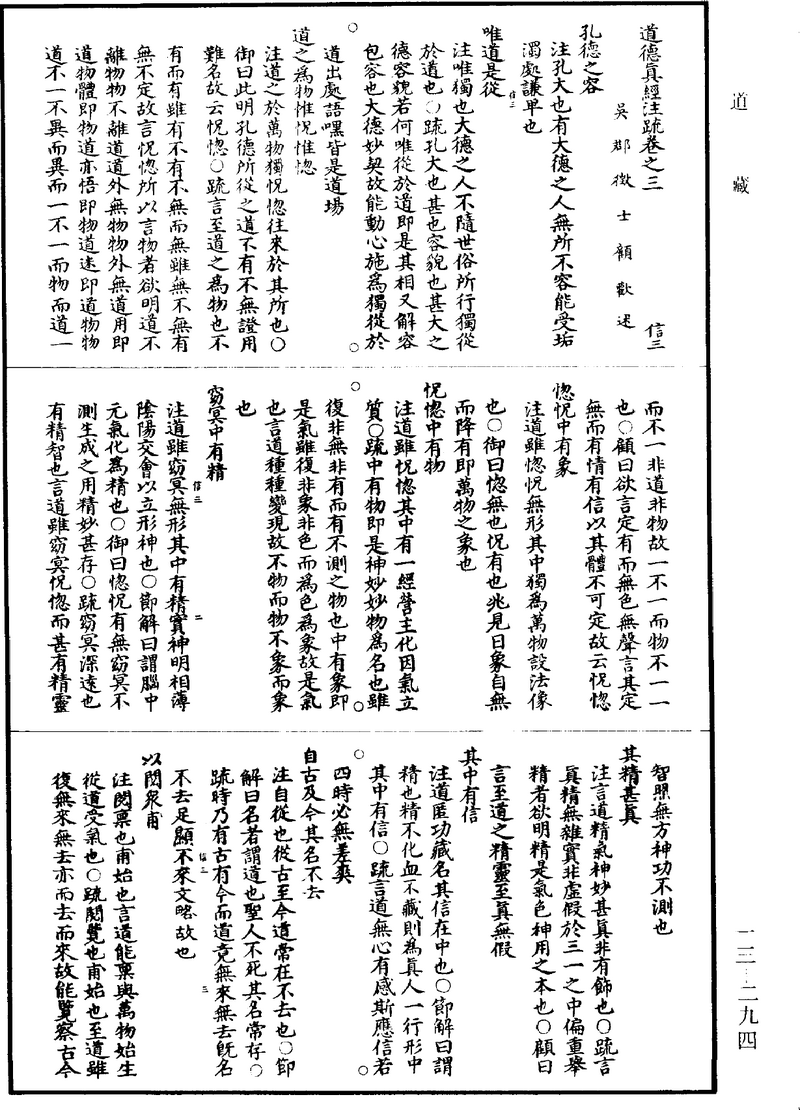 道藏
道德真經注疏卷之三
信三
吳郡徵士顧歡述
孔德之容
注孔大也有大德之人無所不容能受垢
濁處謙卑也
信三
唯道是從
注唯獨也大德之人不隨世俗所行獨從
於道也○疏孔大也甚也容貌也甚大之
德容貌若何唯從於道即是其相又解容
包容也大德妙契故能動心施為獨從於
道出處語嘿皆是道場
道之為物惟怳惟惚
注道之於萬物獨怳惚往來於其所也○
御曰此明孔德所從之道不有不無證用
難名故云怳惚○疏言至道之為物也不
有而有雖有不有不無而無雖無不無有
無不定故言怳惚所以言物者欲明道不
離物物不離道道外無物物外無道用即
道物體即物道亦悟即物道迷即道物物
道不一不異而異而一不一而物而道一
而不一非道非物故一不一而物不一一
也○顧曰欲言定有而無色無聲言其定
無而有情有信以其體不可定故云怳惚
惚怳中有象
注道雖惚怳無形其中獨為萬物設法像
也○御曰惚無也怳有也兆見日象自無
而降有即萬物之象也
怳惚中有物
注道雖怳惚其中有一經營主化因氣立
質○疏中有物即是神妙妙物為名也雖
復非無非有而有不測之物也中有象即
是氣雖復非象非色而為色為象故是氣
也言道種種變現故不物而物不象而象
也
窈冥中有精
信三
二
注道雖窈冥無形其中有精實神明相薄
陰陽交會以立形神也○節解曰謂腦中
元氣化為精也○御曰惚怳有無窈冥不
測生成之用精妙甚存○疏窈冥深遠也
有精智也言道雖窈冥怳惚而甚有精靈
智照無方神功不測也
其精甚真
注言道精氣神妙甚真非有飾也○疏言
真精無雜實非虛假於三一之中偏重舉
精者欲明精是氣色神用之本也○顧曰
言至道之精靈至真無假
其中有信
注道匿功藏名其信在中也○節解曰謂
精也精不化血不藏則為真人一行形中
其中有信○疏言道無心有感斯應信若
四時必無差爽
自古及今其名不去
注自從也從古至今道常在不去也○節
解曰名者謂道也聖人不死其名常存○
疏時乃有古有今而道竟無來無去既名
不去足顯不來文略故也
信三
三
以閱眾甫
注閱稟也甫始也言道能稟與萬物始生
從道受氣也○疏閱覽也甫始也至道雖
復無來無去亦而去而來故能覽察古今
一三—二九四